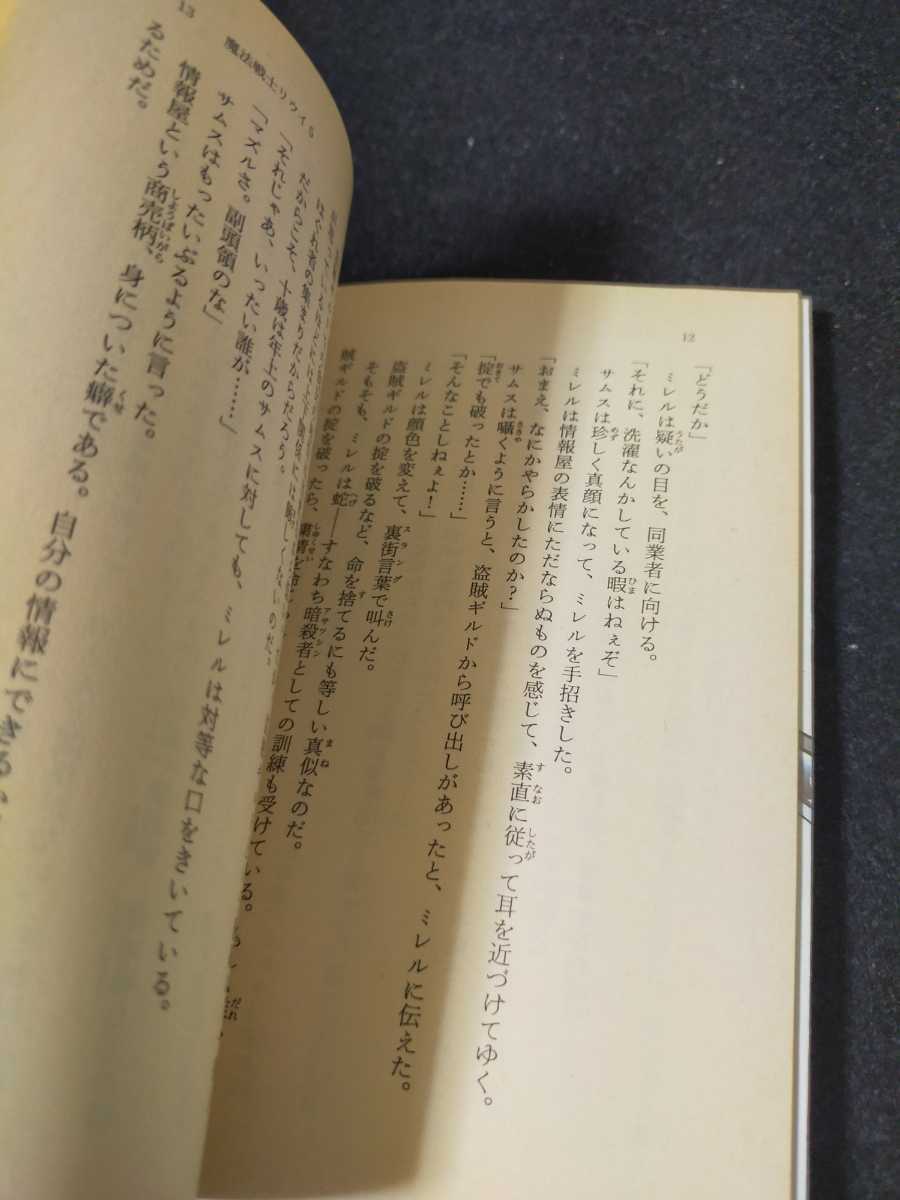 12
「どうだか」
ミレルは疑いの目を、同業者に向ける。
「それに、洗濯なんかしている暇はねぇぞ」
サムスは珍しく真顔になって、ミレルを手招きした。
ミレルは情報屋の表情にただならぬものを感じて、素直に従って耳を近づけてゆく。
「おまえ、なにかやらかしたのか?」
サムスは囁くように言うと、盗賊ギルドから呼び出しがあったと、ミレルに伝えた。
「掟でも破ったとか……」
「そんなことしねぇよ!」
ミレルは顔色を変えて、裏街言葉で叫んだ。
盗賊ギルドの掟を破るなど、命を捨てるにも等しい真似なのだ。
そもそも、ミレルは蛇――すなわち暗殺者としての訓練も受けている。
賊ギルドの掟を破ったら、粛清を
13
魔法戦士リウイ5
はぐれ者の集まりだからだろう。
だからこそ、十歳は年上のサムスに対しても、ミレルは対等な口をきいている。
「それじゃあ、いったい誰が……」
「マズルさ。副頭領のな」
サムスはもったいぶるように言った。
情報屋という商売柄、身についた癖である。自分の情報にできる
るためだ。